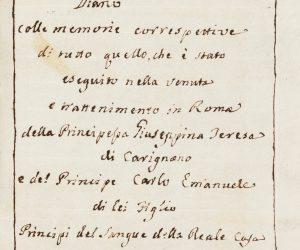 Diario
colle memorie correspettive
di tutto quello, che è stato
eseguito nella venuta
e trattenimento in Roma
della Principessa Giuseppina Teresa
di Carignano
e del Principe Carlo Emanuele
di lei Figlio
Principi del Sangue della Reale Casa